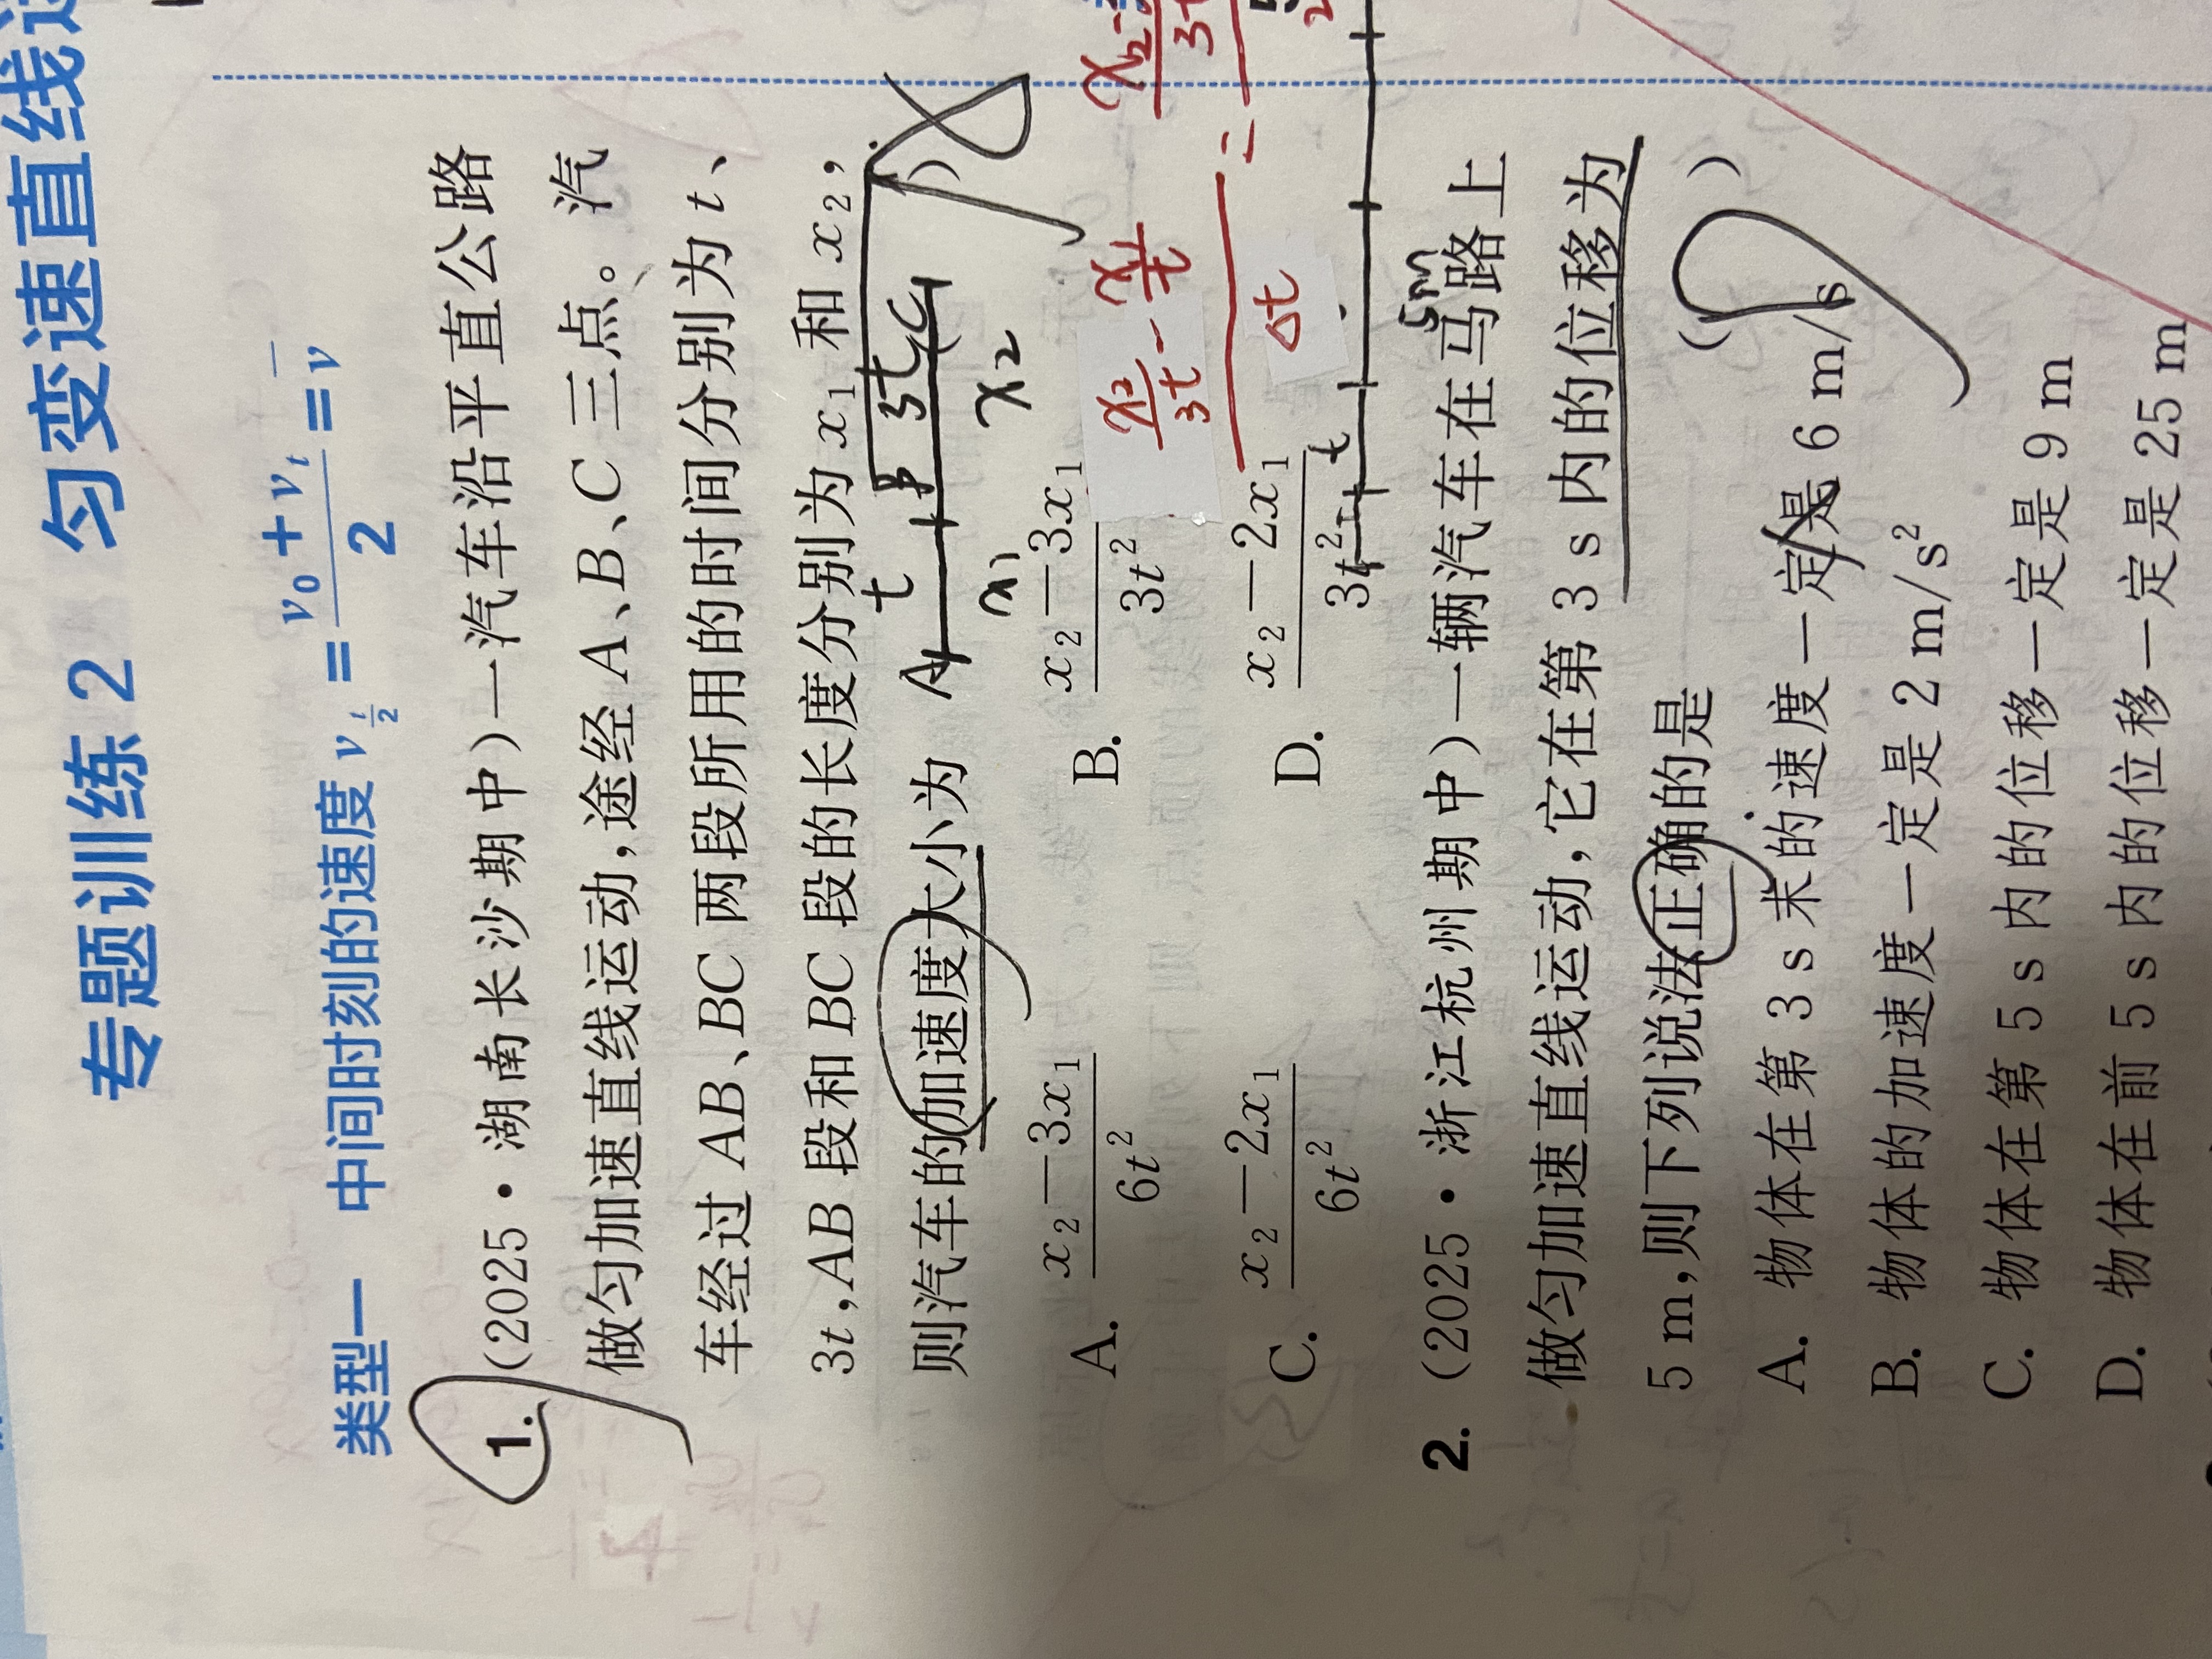 专题训练 2 匀变速直线
类型一 中间时刻的速度 v_{t/2} = \frac{v_0+v_t}{2} = \overline{v}
1. (2025·湖南长沙期中)一汽车沿平直公路
做匀加速直线运动,途经 A、B、C 三点。汽
车经过 AB、BC 两段所用的时间分别为 t、
3t,AB 段和 BC 段的长度分别为 x_1 和 x_2,
则汽车的加速度大小为 ( )
A t B 3t C
x_1 x_2
A. \frac{x_2-3x_1}{6t^2} B. \frac{x_2-3x_1}{3t^2}
C. \frac{x_2-2x_1}{6t^2} D. \frac{x_2-2x_1}{3t^2}
\frac{\frac{x_2}{3t}-\frac{x_1}{t}}{Δt} =
2. (2025·浙江杭州期中)一辆汽车在马路上
5m
做匀加速直线运动,它在第 3 s 内的位移为
5 m,则下列说法正确的是 ( )
A. 物体在第 3 s 末的速度一定是 6 m/s
B. 物体的加速度一定是 2 m/s²
C. 物体在第 5 s 内的位移一定是 9 m
D. 物体在前 5 s 内的位移一定是 25 m